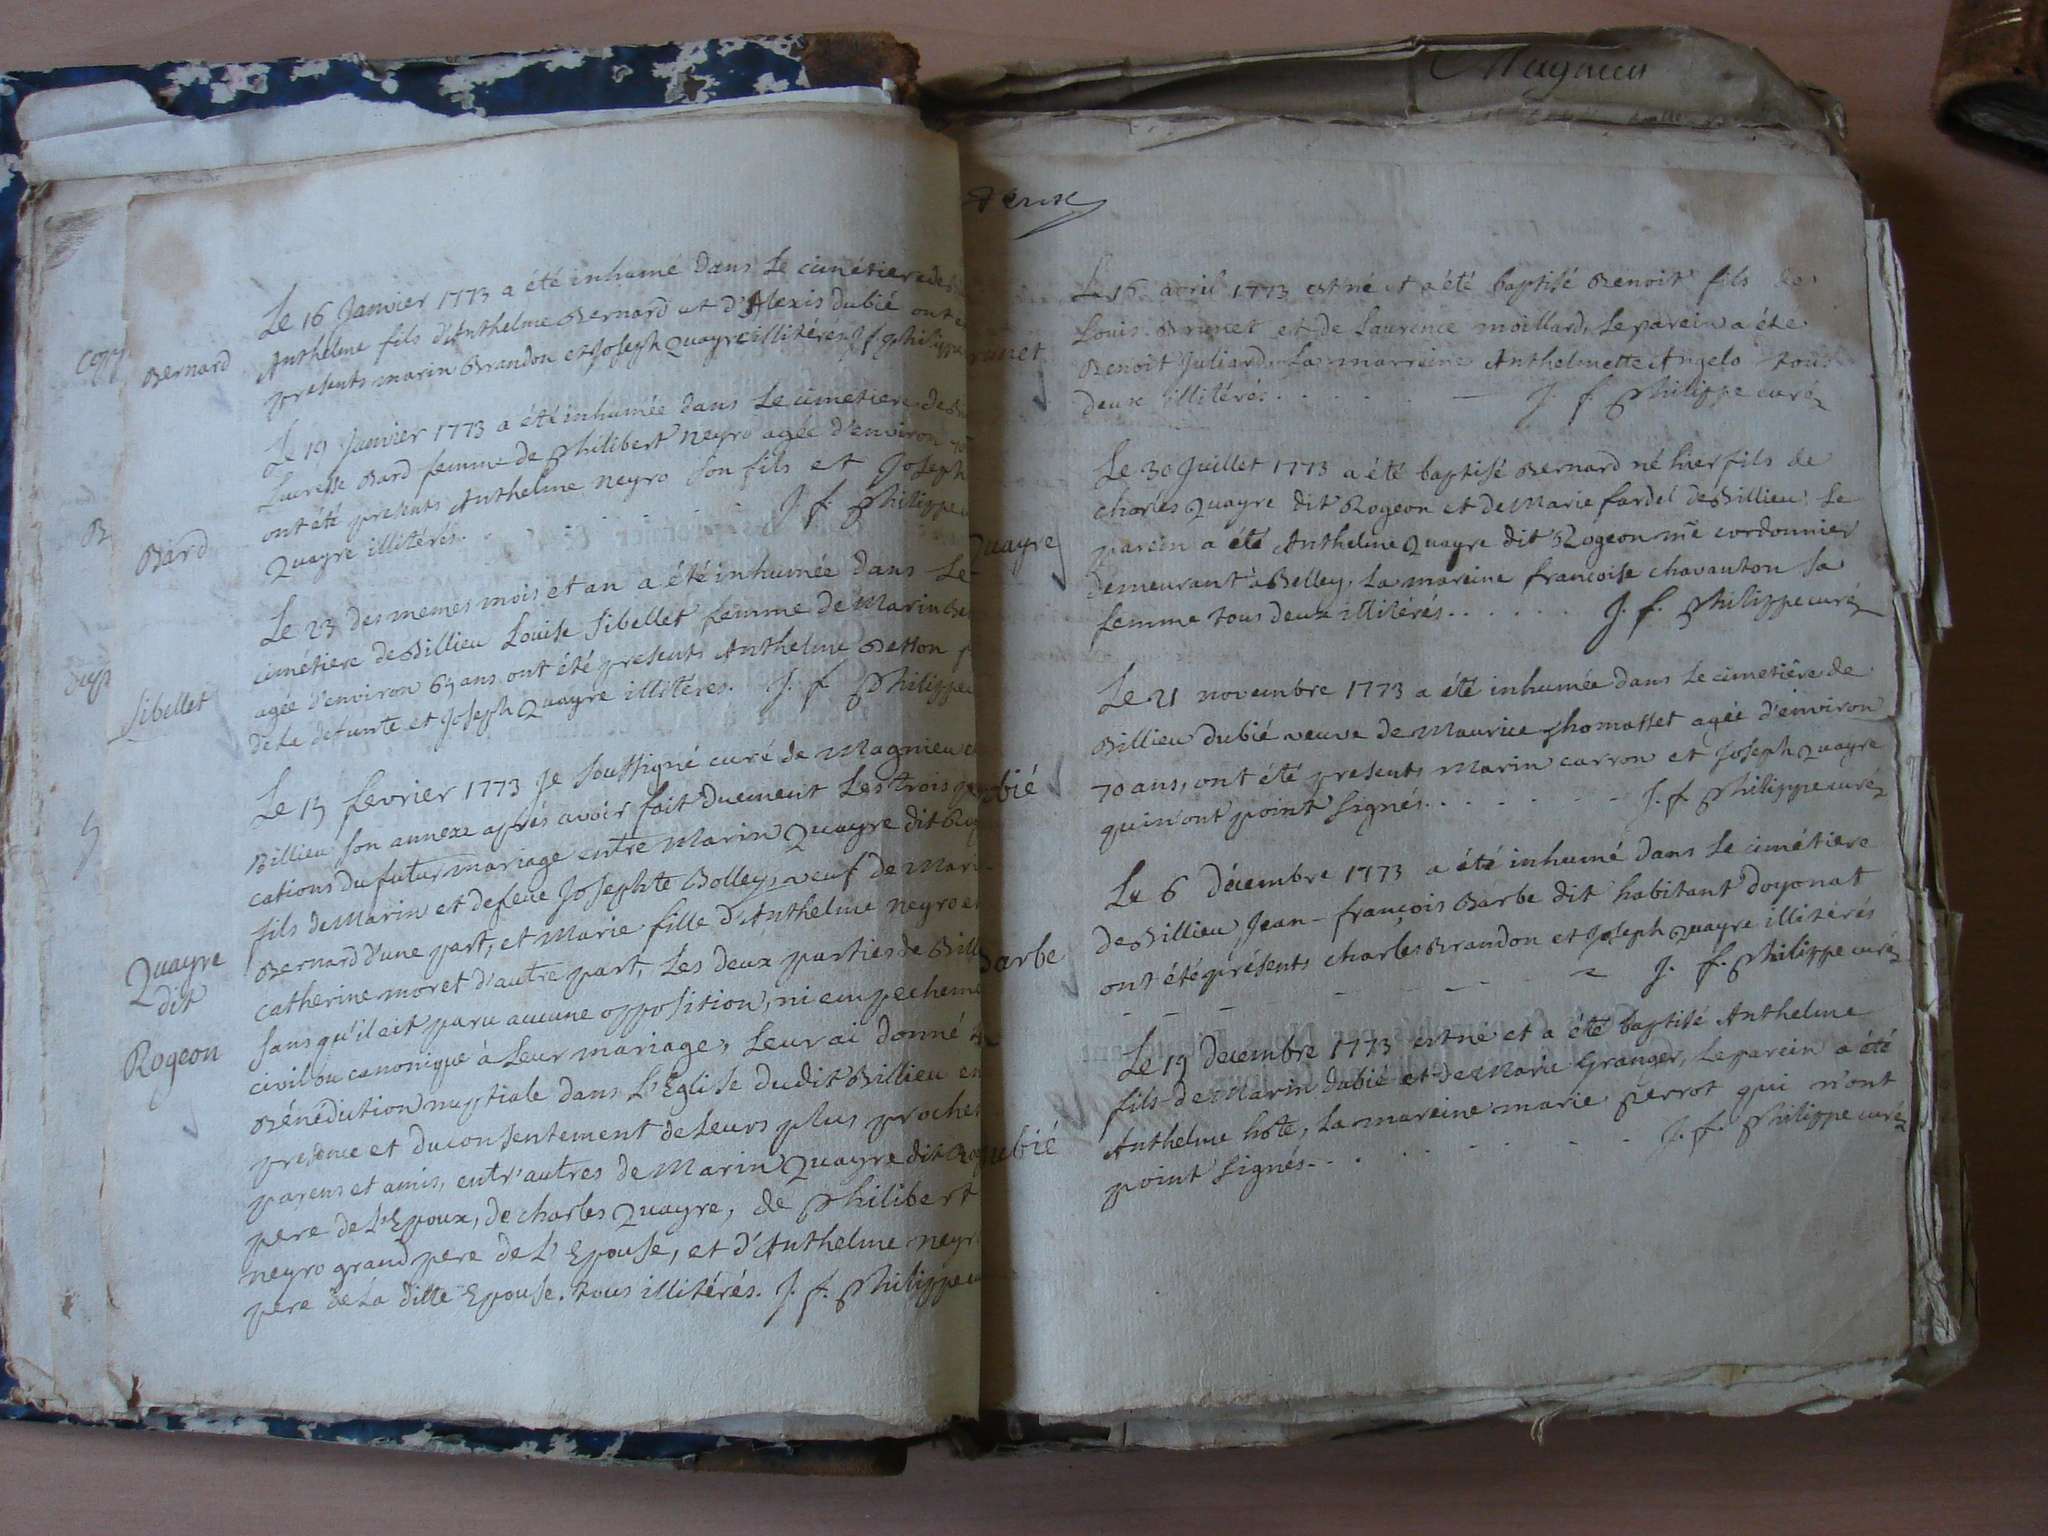 Le 16 Janvier 1773 a été inhumé dans Le cimétiere de
Bernard
Anthelme fils d'Anthelme Bernard et d'Alexis dubié ont
presents marin Brandon et Joseph Quayre illitérés J f philippe
Le 19 Janvier 1773 a été inhumée dans Le cimetiere de
Bard
Lucresse Bard femme de philibert neyro agée d'environ 70
ont été presents Anthelme neyro son fils et Joseph
Quayre illitérés. J. f. philippe
Le 23 des memes mois et an a été inhumée dans Le
Sibellet
cimétiere de Billieu Louise Sibellet femme de Marin
agée d'environ 65 ans ont été presents Anthelme
de La defunte et Joseph Quayre illitéres. J. f. philippe
Le 15 fevrier 1773 je soussigné curé de Magnieu
Billieu son annexe aprés avoir fait duement Les trois
cations du futur mariage entre Marin Quayre dit
fils de Marin et de feue Josephte Bolley, veuf de Marie
Quayre
dit
Rogeon
Bernard d'une part, et Marie fille d'Anthelme neyro et
catherine moret d'autre part, Les deux parties de
sans qu'il ait paru aucune opposition, ni empecheme
civil ou canonique à Leur mariage, Leur ai donné
Bénédiction nuptiale dans L'Eglise dudit Billieu en
presence et du consentement de Leurs plus proches
parens et amis, entr'autres de Marin Quayre dit
pere de L'Epoux, de charles Quayre, de philibert
neyro grand pere de L'Epouse, et d'Anthelme neyro
pere de La ditte Epouse. tous illitérés. J. f. philippe
Magnieu
Le 16 avril 1773 est né et a été baptisé Benoit fils de
Louis Brunet et de Laurence moillard, Le parein a été
Benoit Juliard La marreine Anthelmette Angelo tous
deux illitérés. J. f. philippe curé
Le 30 Juillet 1773 a été baptisé Bernard né hier fils de
Quayre
charles Quayre dit Rogeon et de Marie fardel de Billieu Le
parein a été Anthelme Quayre dit Rogeon me cordonnier
demeurant à Belley, La mareine francoise chavanton sa
femme tous deux illitérés. J. f. philippe curé
Le 21 novembre 1773 a été inhumée dans Le cimetiére de
Billieu dubié veuve de Maurice thomasset agée d'environ
70 ans, ont été presents Marin carron et Joseph Quayre
qui n'ont point signés. J. f. philippe curé
Le 6 décembre 1773 a été inhumé dans Le cimétiere
Barbe
de Billieu Jean-françois Barbe dit habitant d'oyonat
ont été présents charles Brandon et Joseph Quayre illitérés
J. f. philippe curé
Le 19 decembre 1773 est né et a été baptisé Anthelme
fils de Marin dubié et de Marie Granger, Le parein a été
Anthelme hote, La mareine marie perrot qui n'ont
point signés. J. f. philippe curé